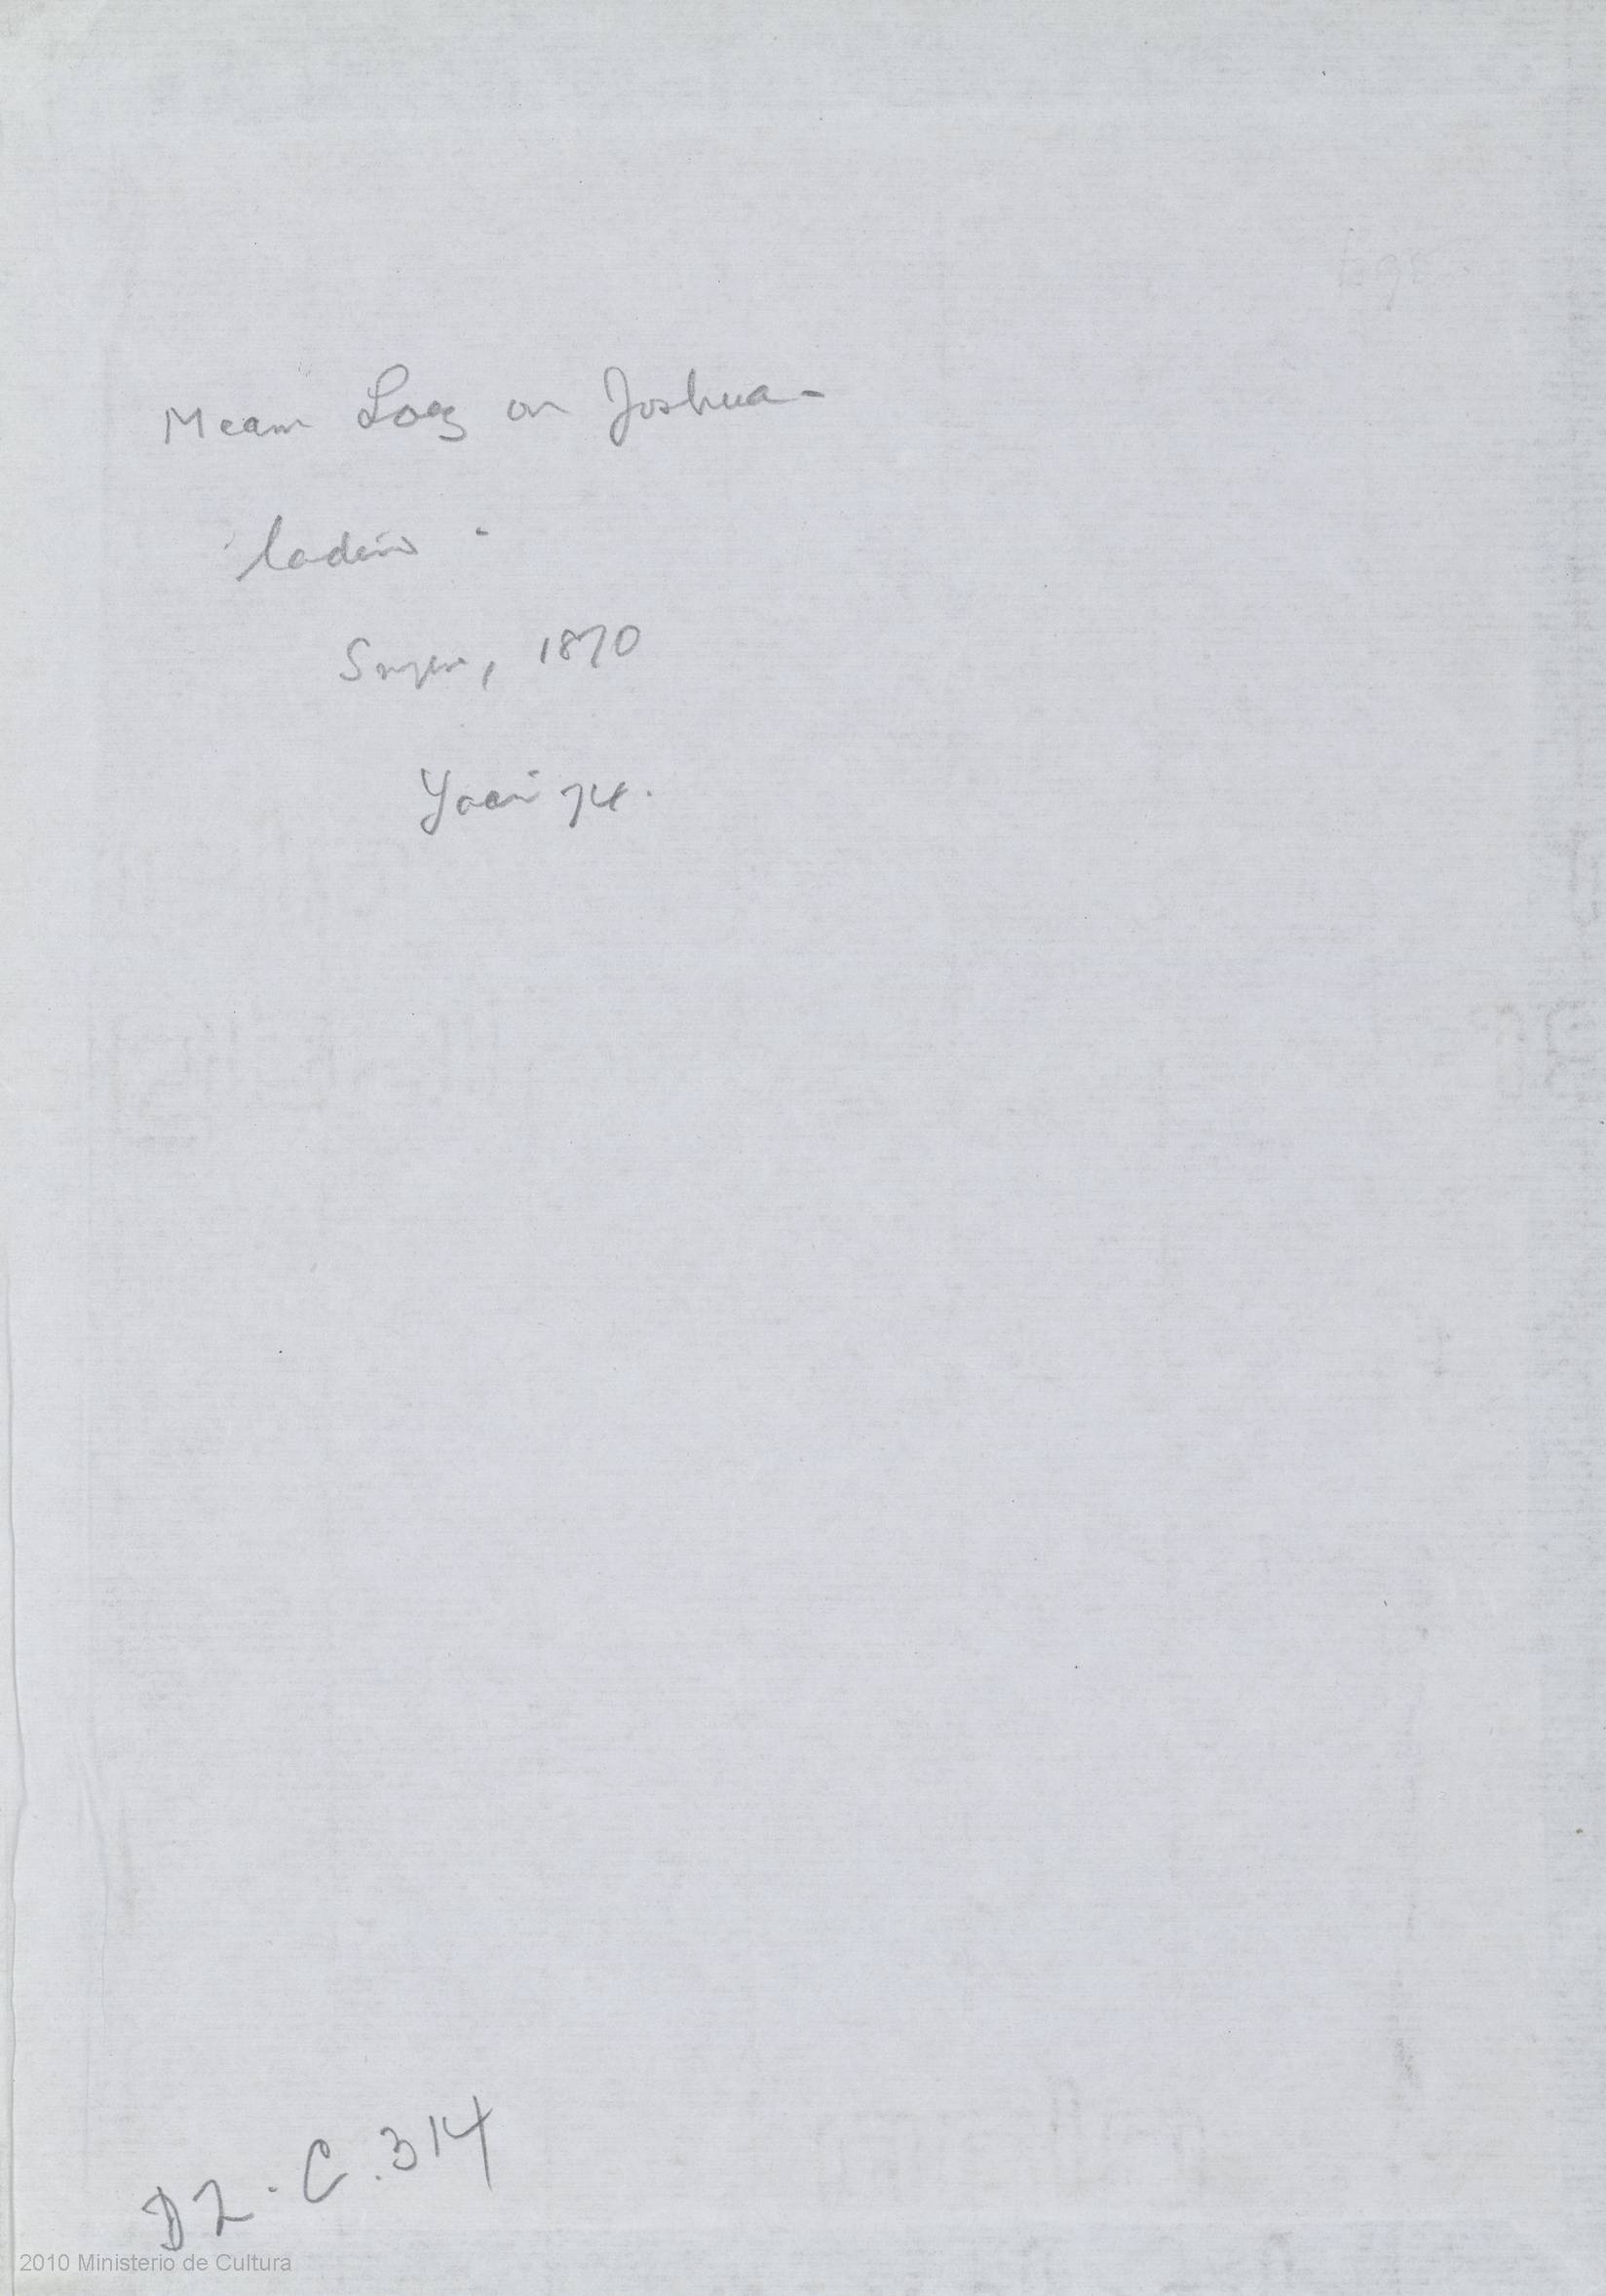 Meam Loez on Joshua -
Ladino -
Smyrn, 1870
Yaari 74.
DZ. C. 314
2010 Ministerio de Cultura